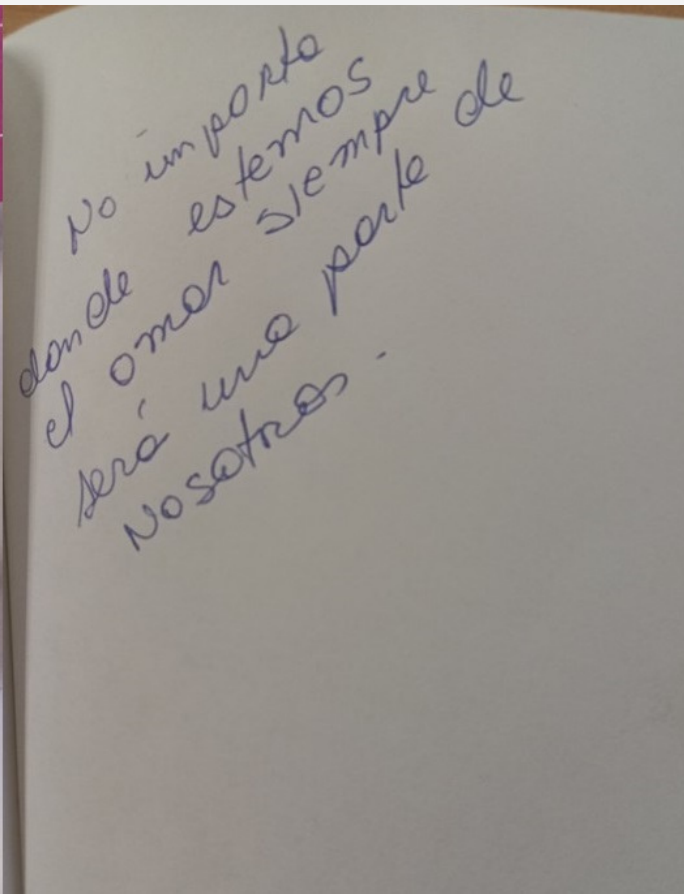 No importa
donde estemos
el amor siempre
será una parte de
Nosotros.